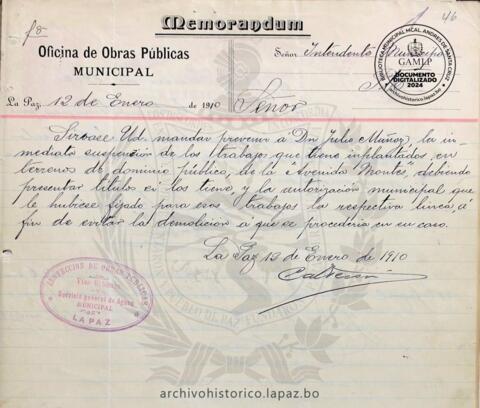 Memorandum
46
Oficina de Obras Públicas
MUNICIPAL
Señor Intendente Municipal
BIBLIOTECA MUNICIPAL MCAL. ANDRES DE SANTA CRUZ
GAMLP
DOCUMENTO
DIGITALIZADO
2024
archivohistorico.lapaz.bo
La Paz, 12 de Enero de 1910
Señor
Sirvase Ud. mandar prevenir á Dn Julio Muñoz, la in-
mediata suspención de los trabajos que tiene inplantados, en
terrenos de dominio público, de la Avenida Montes, debiendo
presentar titulos si los tiene, y la autorización municipal que
le hubiese fijado para esos trabajos la respectiva linea, á
fin de evitar la demolición a que se procederia en su caso.
La Paz 13 de Enero de 1910
INSPECCION DE OBRAS PUBLICAS
Servicio general de Aguas
MUNICIPAL
LA PAZ
archivohistorico.lapaz.bo